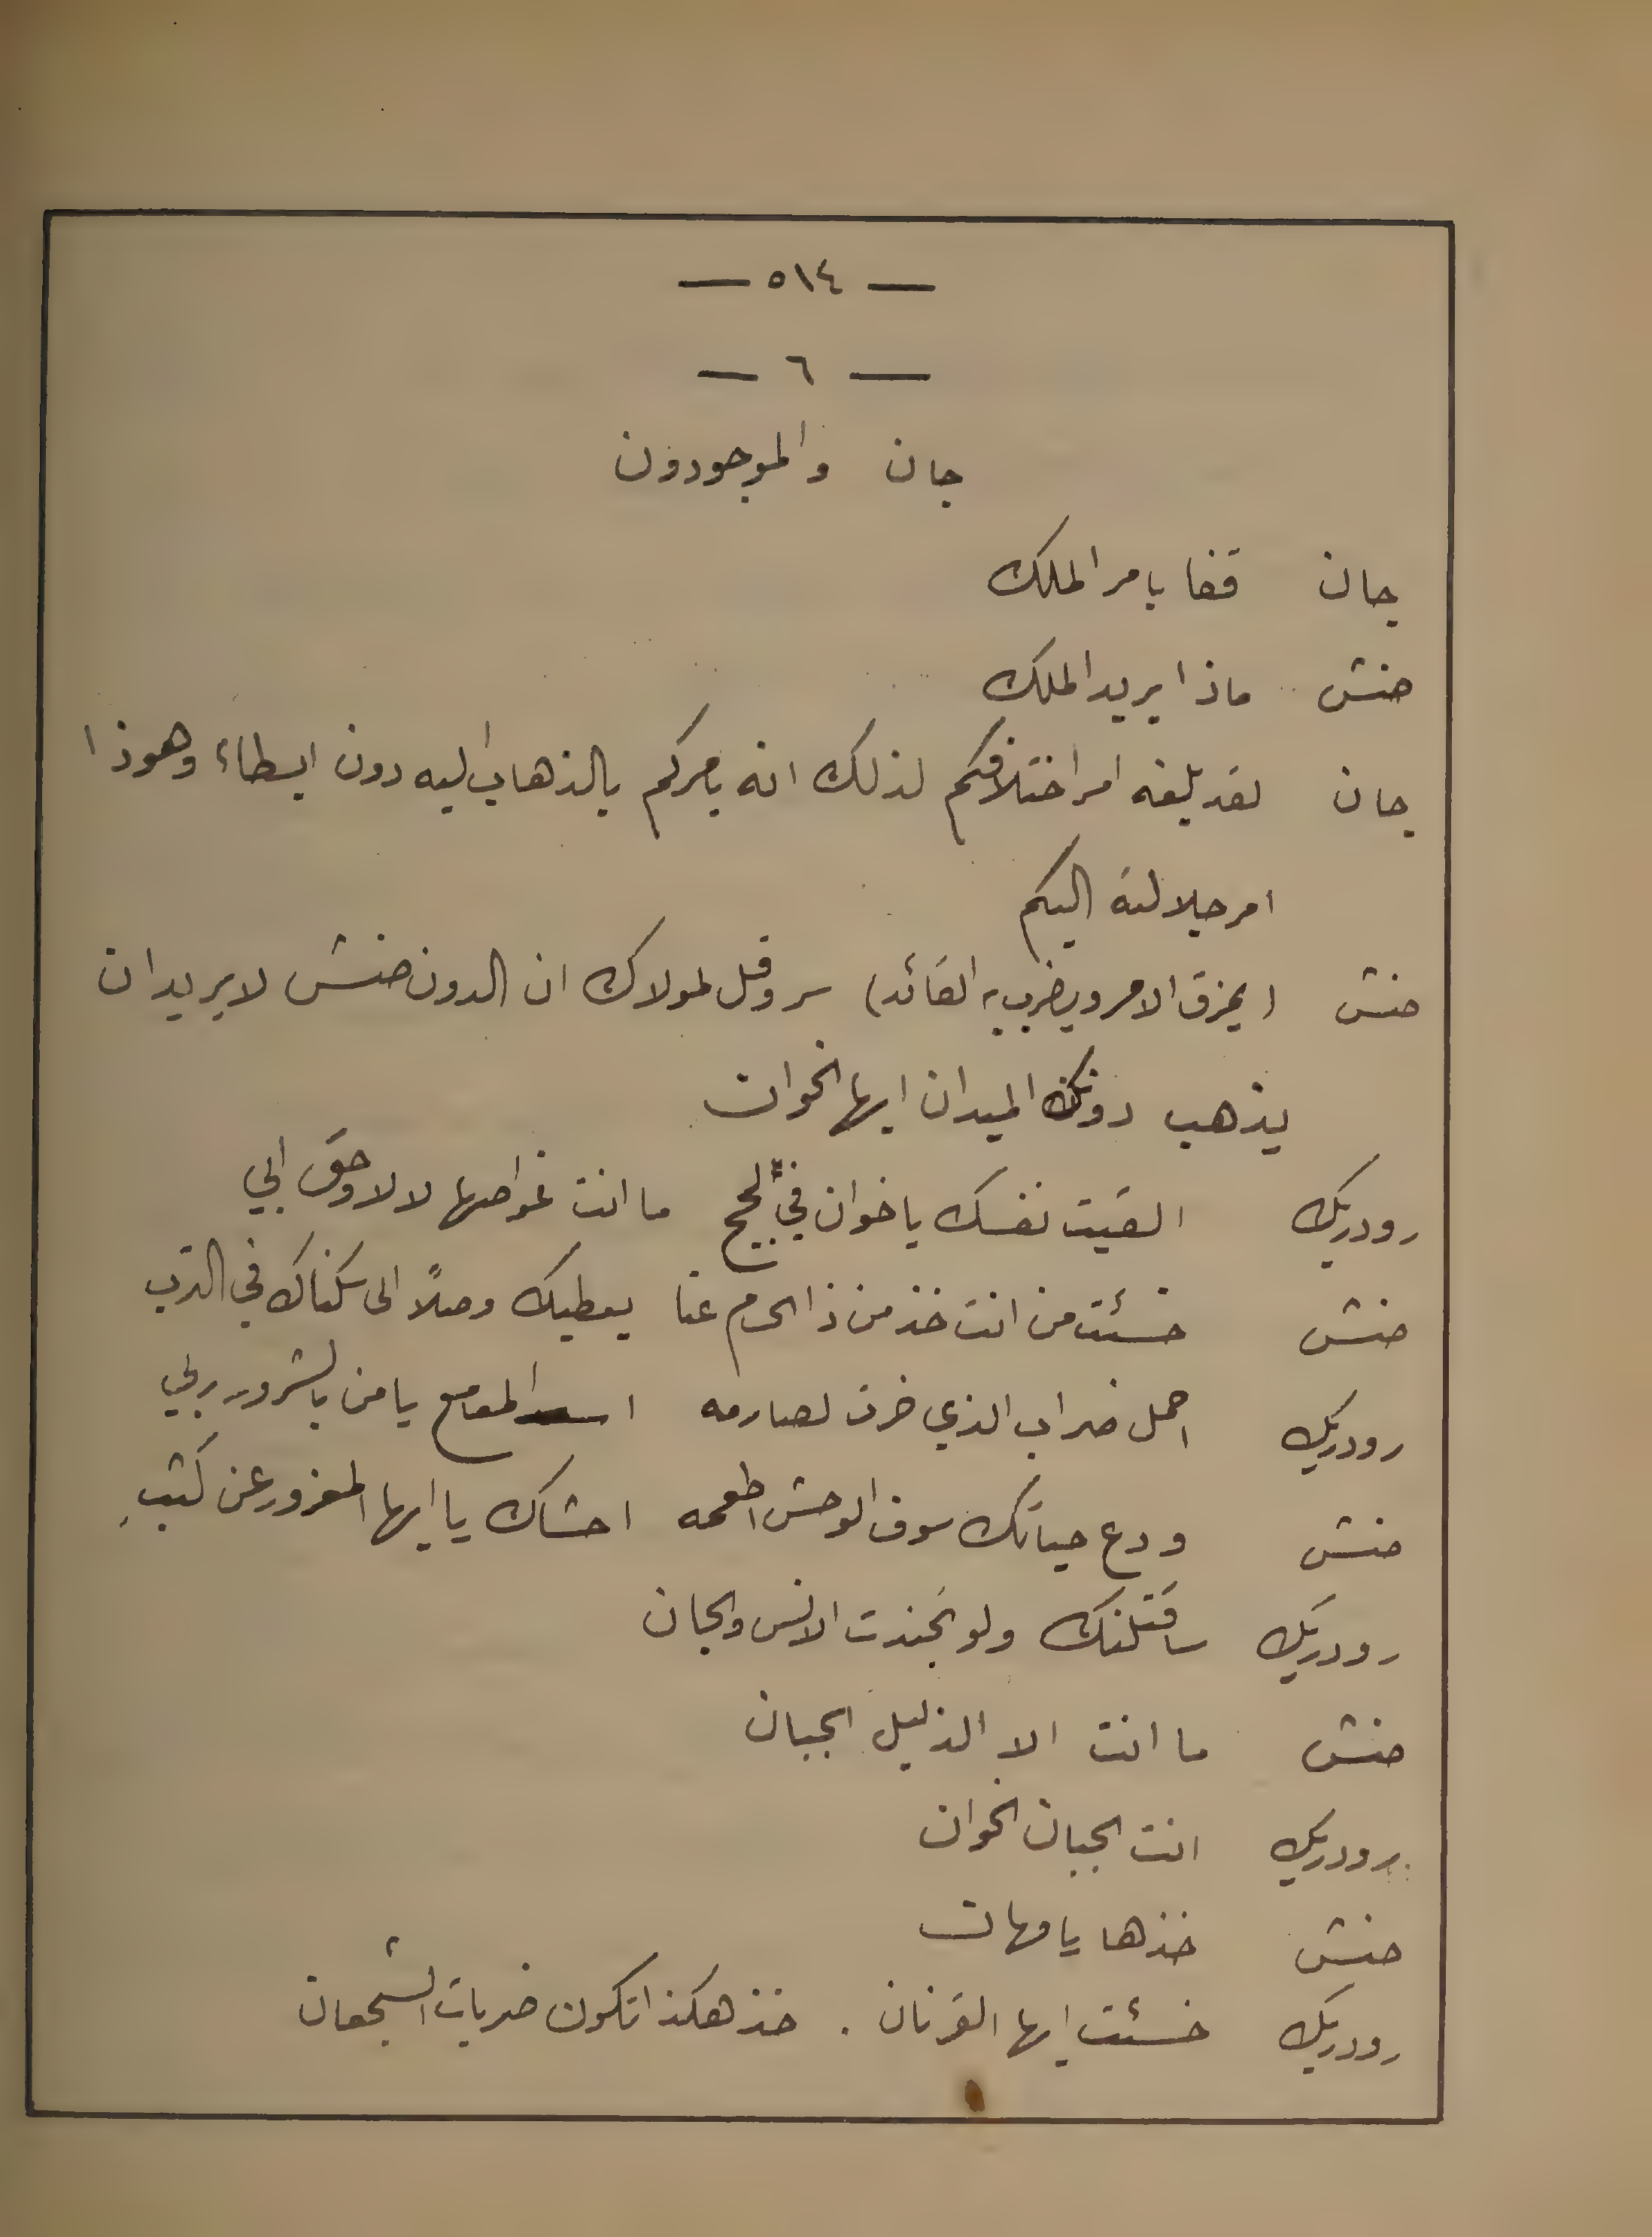 — ٥١٤ —
— ٦ —
جان والموجودون
جان قفا بامر الملك
حنش ماذا يريد الملك
جان لقد بلغه امر اختلافكم لذلك انه يامركم بالذهاب اليه دون ابطاء وهوذا
امر جلالته اليكم
حنش (يمزق الامر ويضرب به القائد) سر وقل لمولاك ان الدون حنش لا يريد ان
يذهب دونك الميدان ايها الخوان
رودريك القيت نفسك يا خوان في لجج ما انت غواصها لا لا وحق ابي
حنش خسئت من انت خذ من ذا الحرم عنا يعطيك وصلاً الى سكناك في الترب
رودريك احمل ضراب الذي خرت لصارمه المعامع يا من بالشرور ربي
حنش ودع حياتك سوف الوحش اطعمه احشاك يا ايها المغرور عن كثبِ
رودريك ساقتلنك ولو تجندت الانس والجان
حنش ما انت الا الذليل الجبان
رودريك انت الجبان الخوان
حنش خذها يا مهان
رودريك خسئت ايها القرنان . خذ هكذا تكون ضربات الشجعان